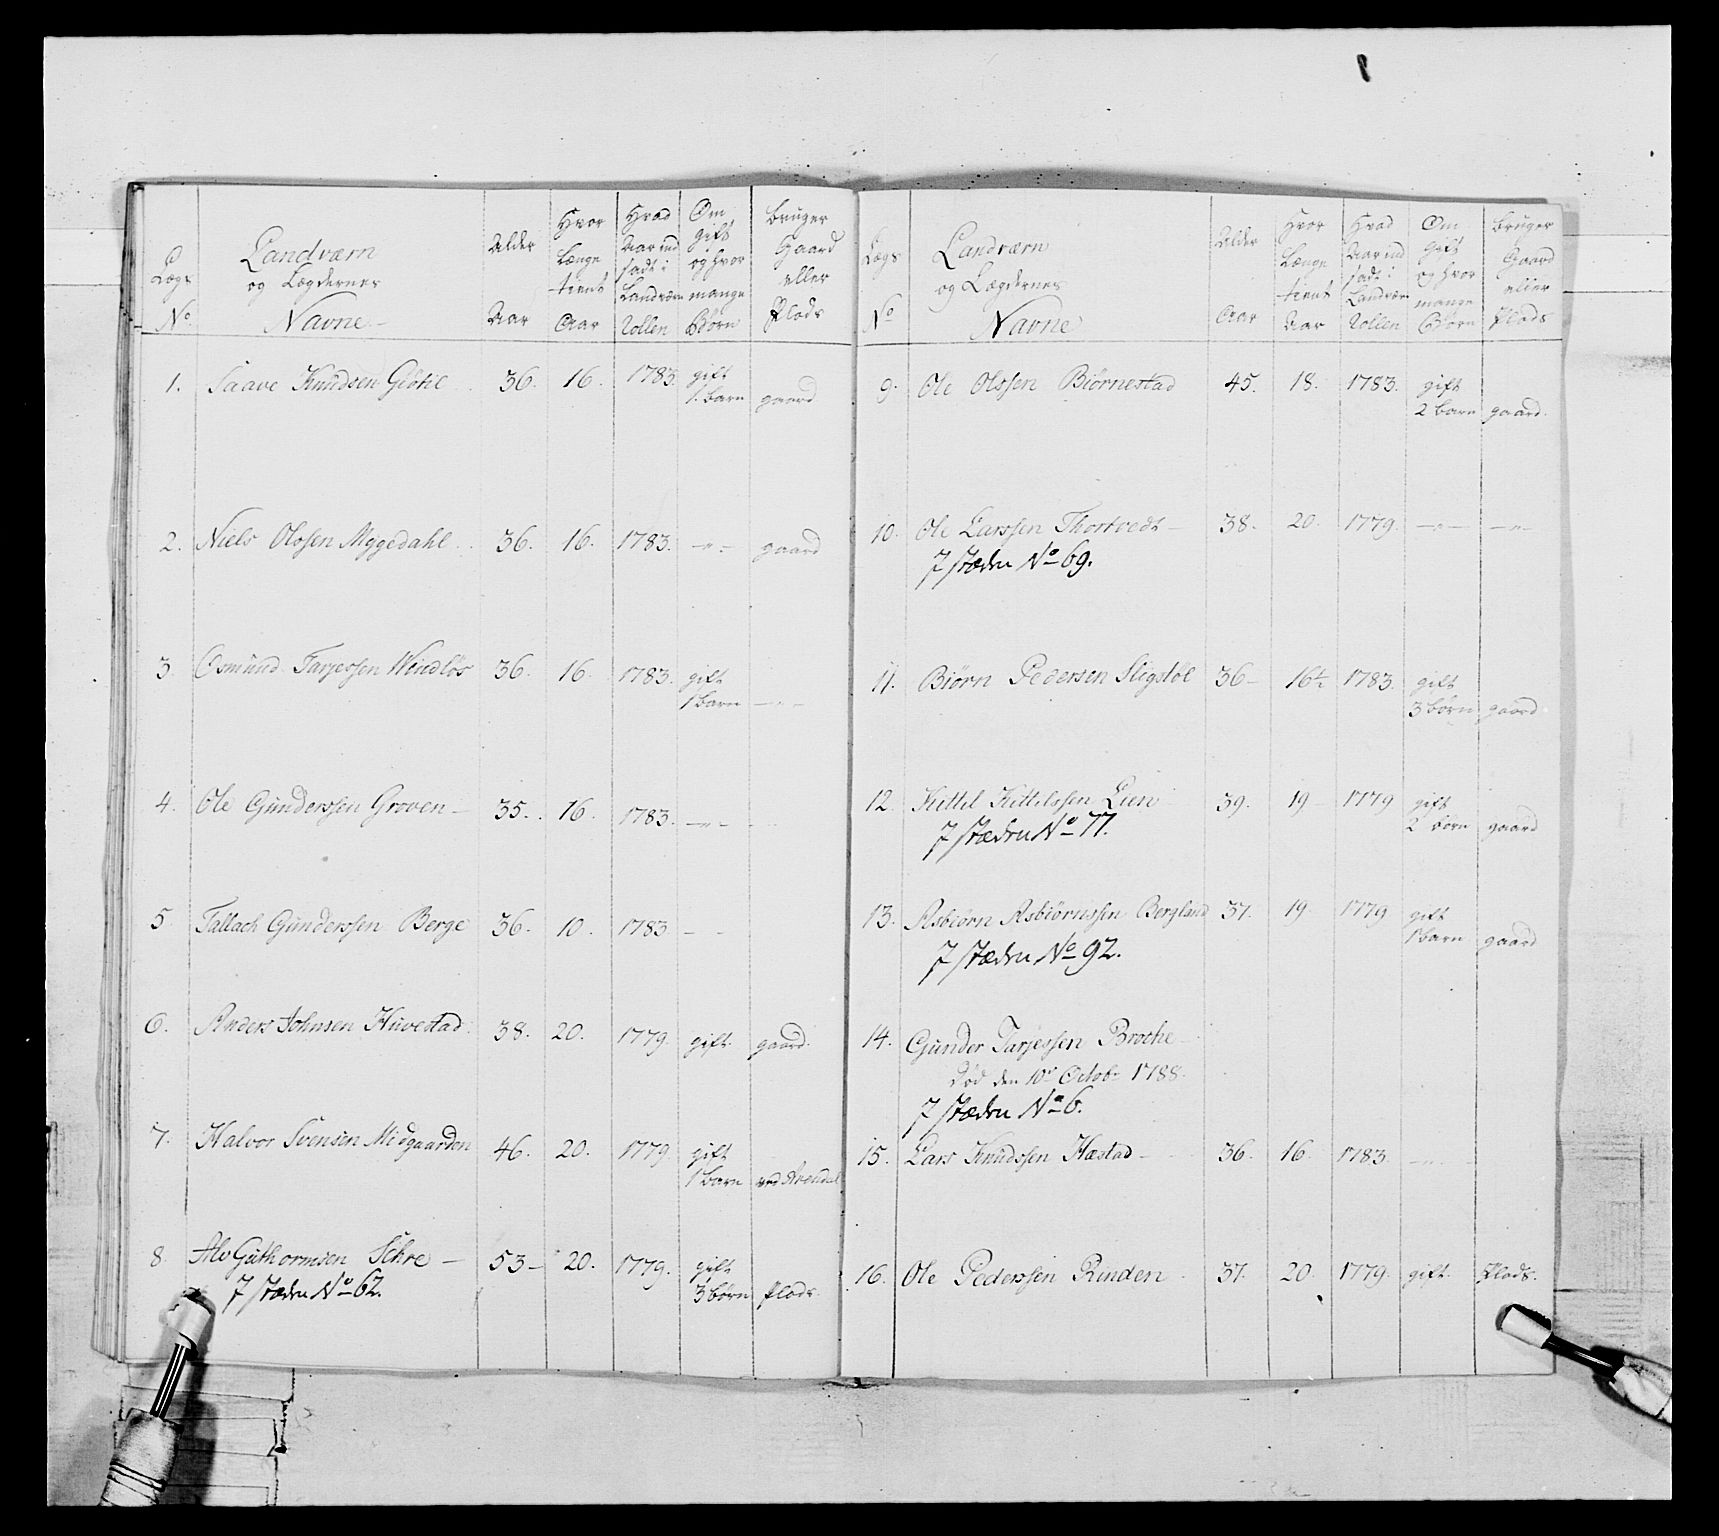 Lægs No. | Landværn og Lægdernes Navne | Alder Aar | Hvor Længe tient Aar | Hvad Aar ind sadt i Landværn Rollen | Om gift og hvor mange Börn | bruger Gaard eller Plads
1. Saave Knudsen 36. 16. 1783. gift
1. barn gaard
2. Niels Olssen Myggedahl 36. 16. 1783. —"— gaard
3. Osmund Tarjessen Windlös 36. 16. 1783. gift
1 barn —"—
4. Ole Gunderssen Groven — 35. 16. 1783. —"—
5. Tallach Gunderssen Berge 36. 10. 1783 — —
6. Anders Johnsen Huvestad 38. 20. 1779. gift gaard.
7. Halvor Svensen Midgaarden 46. 20. 1779. gift
1 barn ved Arendal
8. Alv Guthormsen — 53 — 20. 1779. gift
J stæden No 62. 3 börn Plads
Lægs No | Landværn og Lægdernes Navne | Alder Aar | Hvor Længe tient Aar | Hvad Aar ind sadt i Landværn Rollen | Om gift og hvor mange Börn | bruger Gaard eller Plads
9. Ole Olssen Biørnestad 45. 18. 1783. gift
2 barn gaard.
10. Ole Larssen Thortvedt — 38. 20. 1779. —"— —"—
J stæden No 69.
11. Biørn Pedersen Sligstøl 36 — 16½ 1783. gift
3 börn gaard
12. Kittil Kittilssen Lien 39. 19 — 1779 gift
J stæden No 77. 2 börn gaard
13. Asbiörn Asbiörnssen Bergland 37. 19. 1779 gift
J stæden No 92. 1 barn gaard
14. Gunder Tarjessen Broche —
död den 10de Octobr 1788.
J stæden No 6.
15. Lars Knudssen Hæstad — 36. 16 1783. —"—
16. Ole Pederssen Rinden 37. 20. 1779. gift. Plads.